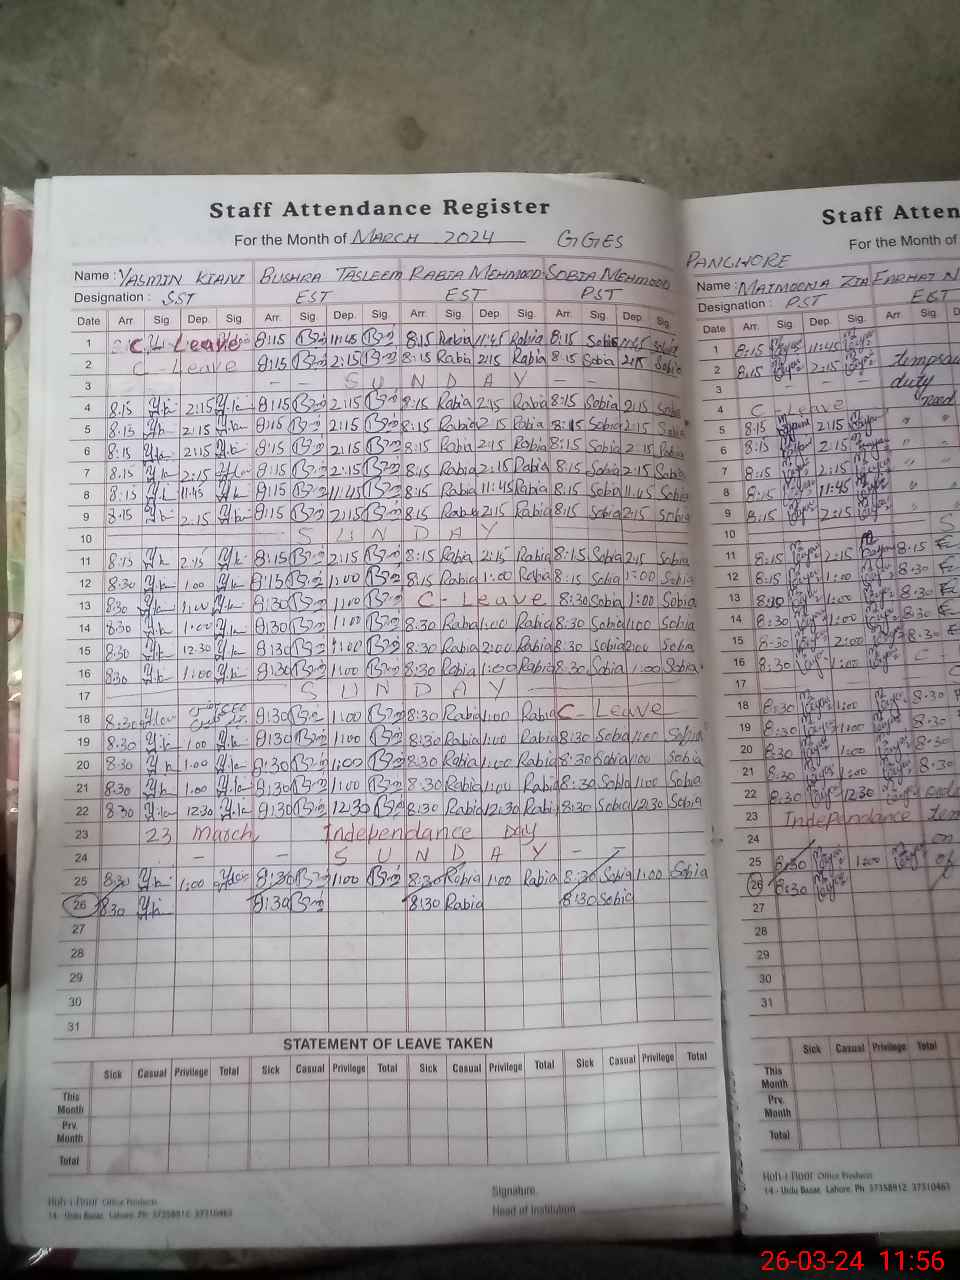 Staff Attendance Register
For the Month of MARCH 2024 GGES
Name : YASMIN KIANI BUSHRA TASLEEM RABIA MEHMOOD SOBIA MEHMOOD
Designation : SST EST EST PST
Date Arr. Sig. Dep. Sig. Arr. Sig. Dep. Sig. Arr. Sig. Dep. Sig. Arr. Sig. Dep. Sig.
1 C. Leave 8:15 11:45 8:15 Rabia 11:45 Rabia 8:15 Sobia 11:45 Sobia
2 C-Leave 8:15 2:15 8:15 Rabia 2:15 Rabia 8:15 Sobia 2:15 Sobia
3 - - S U N D A Y - -
4 8:15 Y.k 2:15 Y.k 8:15 2:15 8:15 Rabia 2:15 Rabia 8:15 Sobia 2:15 Sobia
5 8:15 Y.k 2:15 Y.k 8:15 2:15 8:15 Rabia 2:15 Rabia 8:15 Sobia 2:15 Sobia
6 8:15 Y.k 2:15 Y.k 8:15 2:15 8:15 Rabia 2:15 Rabia 8:15 Sobia 2:15
7 8:15 Y.k 2:15 8:15 2:15 8:15 Rabia 2:15 Rabia 8:15 Sobia 2:15 Sobia
8 8:15 Y.k 11:45 Y.k 8:15 11:45 8:15 Rabia 11:45 Rabia 8:15 Sobia 11:45 Sobia
9 8:15 Y.k 2:15 Y.k 8:15 2:15 8:15 Rabia 2:15 Rabia 8:15 Sobia 2:15 Sobia
10 S U N D A Y
11 8:15 Y.k 2:15 Y.k 8:15 2:15 8:15 Rabia 2:15 Rabia 8:15 Sobia 2:15 Sobia
12 8:30 Y.k 1:00 Y.k 8:15 1:00 8:15 Rabia 1:00 Rabia 8:15 Sobia 1:00 Sobia
13 8:30 Y.k 1:00 Y.k 8:30 1:00 C-Leave 8:30 Sobia 1:00 Sobia
14 8:30 Y.k 1:00 Y.k 8:30 1:00 8:30 Rabia 1:00 Rabia 8:30 Sobia 1:00 Sobia
15 8:30 Y.k 12:30 Y.k 8:30 1:00 8:30 Rabia 2:00 Rabia 8:30 Sobia 2:00 Sobia
16 8:30 Y.k 1:00 Y.k 8:30 1:00 8:30 Rabia 1:00 Rabia 8:30 Sobia 1:00 Sobia
17 S U N D A Y
18 8:30 8:30 1:00 8:30 Rabia 1:00 Rabia C-Leave
19 8:30 Y.k 1:00 Y.k 8:30 1:00 8:30 Rabia 1:00 Rabia 8:30 Sobia 1:00 Sobia
20 8:30 Y.k 1:00 Y.k 8:30 1:00 8:30 Rabia 1:00 Rabia 8:30 Sobia 1:00 Sobia
21 8:30 Y.k 1:00 Y.k 8:30 1:00 8:30 Rabia 1:00 Rabia 8:30 Sobia 1:00 Sobia
22 8:30 Y.k 12:30 Y.k 8:30 12:30 8:30 Rabia 12:30 Rabia 8:30 Sobia 12:30 Sobia
23 23 March Independance Day
24 - - S U N D A Y -
25 8:30 Y.k 1:00 8:30 1:00 8:30 Rabia 1:00 Rabia 8:30 Sobia 1:00 Sobia
26 8:30 Y.k 8:30 8:30 Rabia 8:30 Sobia
27
28
29
30
31
STATEMENT OF LEAVE TAKEN
Sick Casual Privilege Total Sick Casual Privilege Total Sick Casual Privilege Total Sick Casual Privilege Total
This Month
Prv. Month
Total
Office Products
14 - Urdu Bazar, Lahore. Ph: 37358912, 37310463
Signature
Head of Institution
Staff Atten
For the Month of
PANGHORE
Name : MAIMOONA ZIA FARHAT N
Designation : PST EST
Date Arr. Sig. Dep. Sig. Arr. Sig. D
1 8:15 11:45
2 8:15 2:15
3 - -
duty
4 C. Leave
5 8:15 2:15 "
6 8:15 2:15 "
7 8:15 2:15 "
8 8:15 11:45 "
9 8:15 2:15 "
10 S
11 8:15 2:15 8:15
12 8:15 1:00 8:30
13 8:30 1:00 8:30
14 8:30 1:00 8:30
15 8:30 2:00 8:30
16 8:30 1:00 C -
17
18 8:30 1:00 8:30
19 8:30 1:00 8:30
20 8:30 1:00 8:30
21 8:30 1:00 8:30
22 8:30 12:30
23 Independance
24 on
25 8:30 1:00 of
26 8:30
27
28
29
30
31
Sick Casual Privilege Total
This Month
Prv. Month
Total
Office Products
14 - Urdu Bazar, Lahore. Ph: 37358912, 37310463
26-03-24 11:56